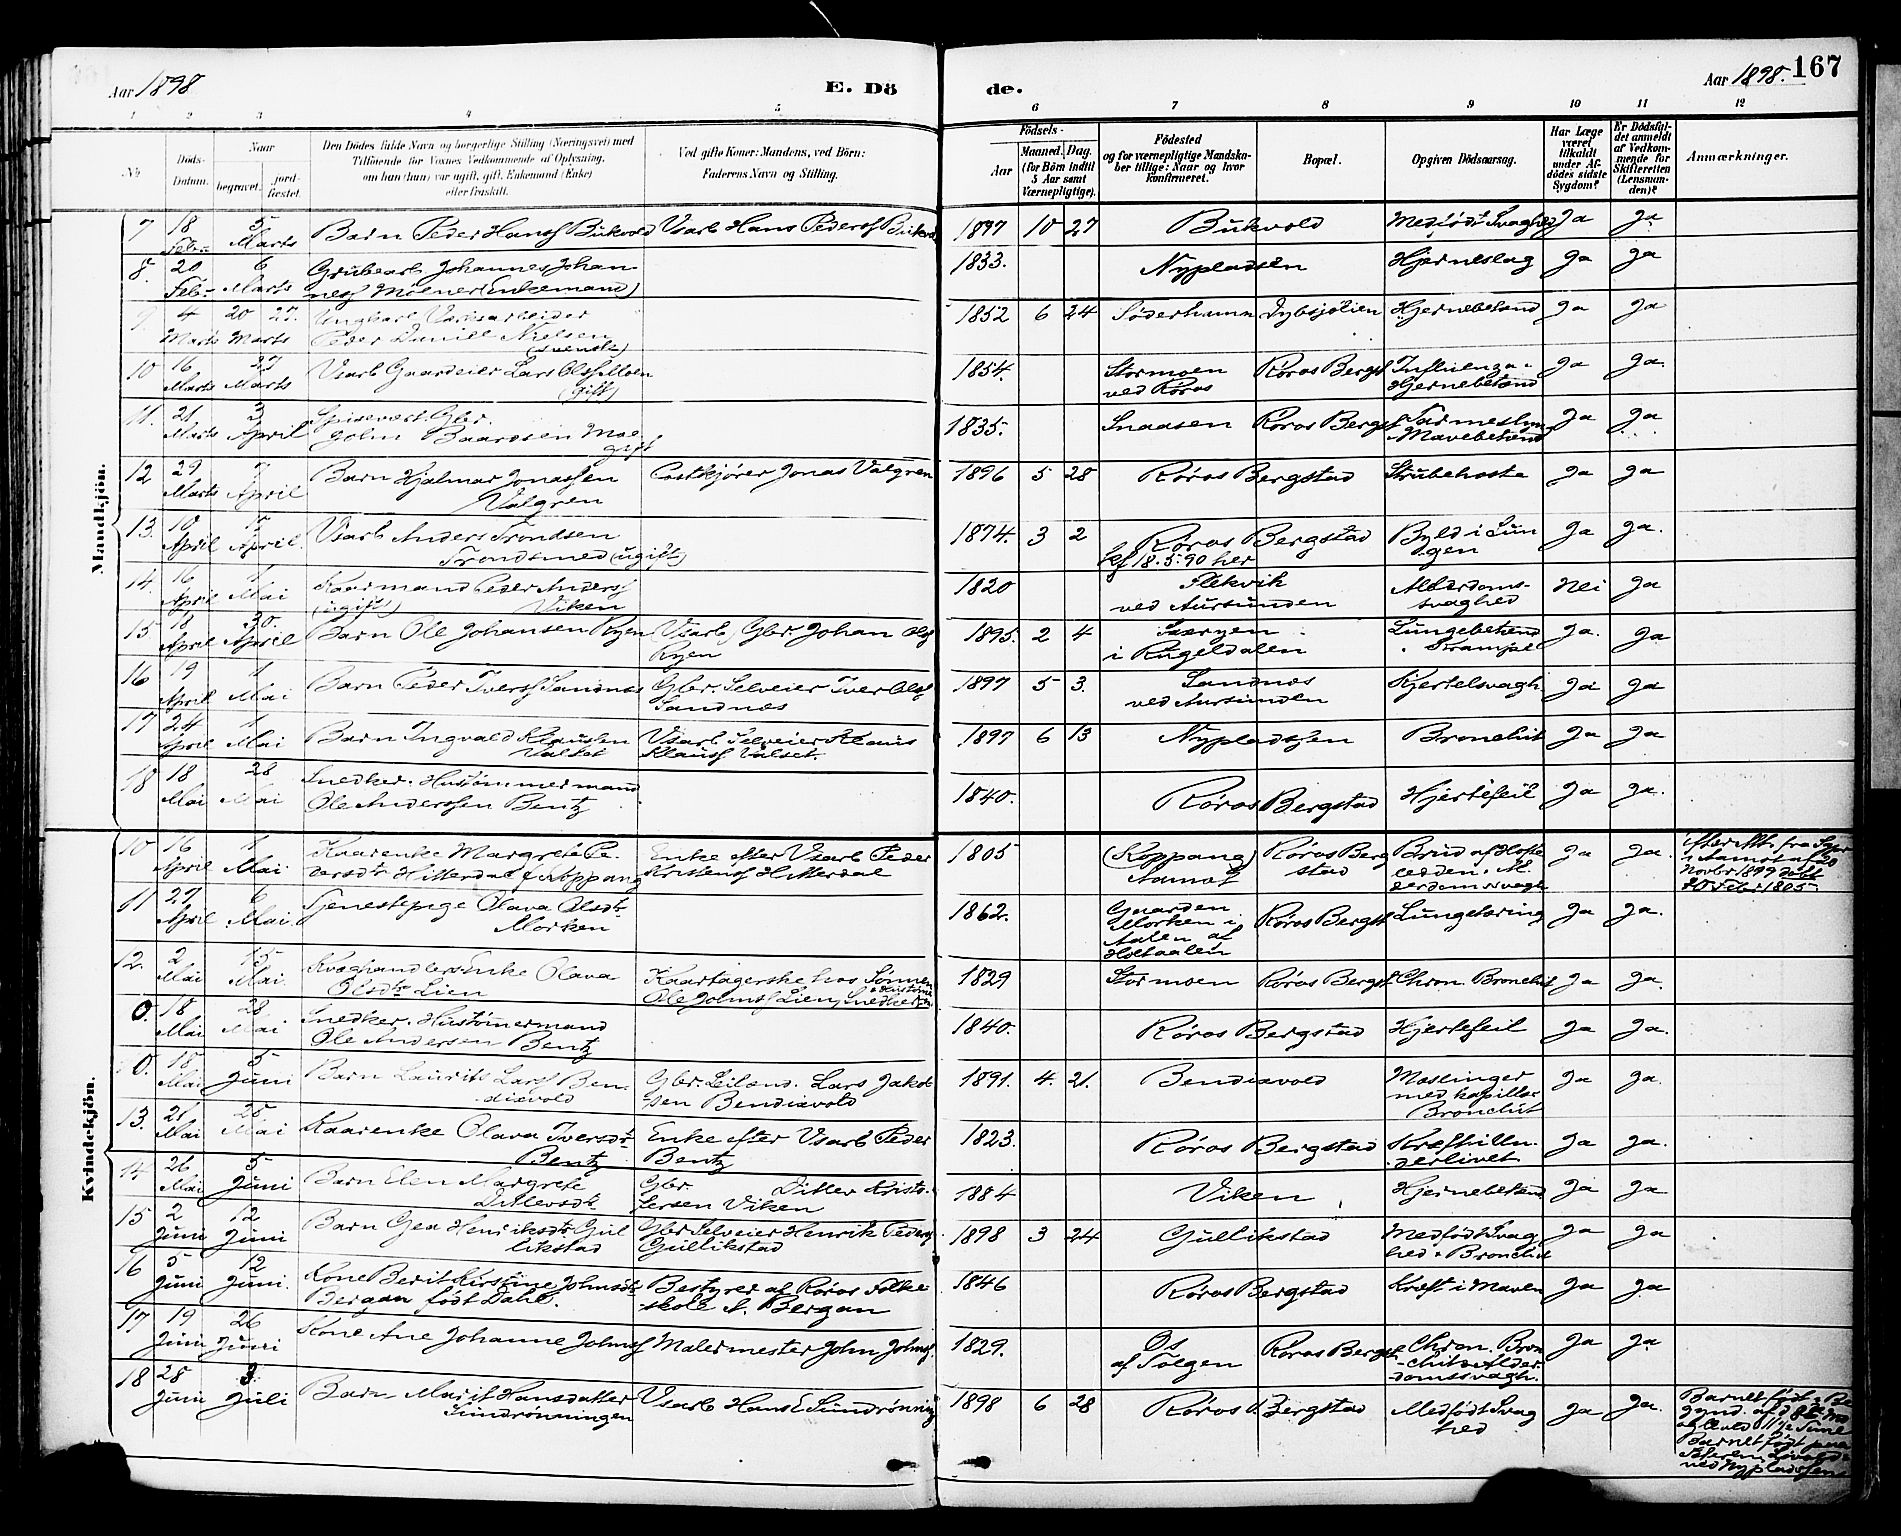 Aar 1898
E. Dö
de.
Aar 1898.
167
1 2 3 4 5 6 7 8 9 10 11 12
No
Döds-
Datum.
Naar
begravet.
jord-
fæstet.
Den Dödes fulde Navn og borgerlige Stilling (Næringsvei) med
Tilföiende for Voxnes Vedkommende af Oplysning,
om han (hun) var ugift, gift, Enkemand (Enke)
eller fraskilt.
Ved gifte Koner: Mandens, ved Börn:
Faderens Navn og Stilling.
Födsels-
Aar
Maaned. Dag.
(for Börn indtil
5 Aar samt
Værnepligtige).
Födested
og for værnepligtige Mandska-
ber tillige: Naar og hvor
konfirmeret.
Bopæl.
Opgiven Dödsaarsag.
Har Læge
været
tilkaldt
under Af-
dödes sidste
Sygdom?
Er Dödsfal-
det anmeldt
af Vedkom-
mende for
Skifteretten
(Lensman-
den)?
Anmærkninger.
Mandkjön.
7 18 Feb. 5 Marts Barn Peder Hans Bukvold Vsarb Hans Peders Bukvold 1897 10 27 Bukvold Medfödt Svaghed Ja Ja
8. 20 Feb. 6 Marts Grubearb Johannes Johan
nes Moener (Enkemand) 1833. Nypladsen Hjerneslag Ja Ja
9. 4 Marts 20 Marts 27. Ungkarl Værksarbeider
Peder Daniel Nielsen
(svensk) 1852 6 24 Söderhamn Dybsjölien Hjernebetænd Ja Ja
10 16 Marts 27 Marts Vsarb Gaardeier Lars Olss Moen
(gift) 1854. Stormoen
ved Røros Røros Bergst Influenza
Hjernebetænd Ja Ja.
11. 21 Marts 3 April Gbr.
John Baardsen Moe
gift 1835. Snaasen Røros Bergst Tarmeslyng
Mavebetænd Ja Ja
12 29 Marts 7 April Barn Hjalmar Jonassen
Valgren Postkjører Jonas Valgren 1896 5 28 Røros Bergstad Strubehoste Ja Ja
13. 10 April 17 April. Vsarb Anders Trondsen
Trondsmed (ugift) 1874. 3 2 Røros Bergstad
kf 18.5.90 her Byld i Lun
gen Ja Ja.
14. 16 April 1 Mai Kaarmand Peder Anders
(ugift) Viken 1820
ved Aursunden Alderdoms-
svaghed Nei Ja
15 18 April 30. April Barn Ole Johansen Ryen Vsarb, Gbr. Johan Ols
Ryen 1895. 2 4
i Rugeldalen Lungebetænd
Krampe Ja. Ja
16 19 April 1 Mai Barn Peder Ivers Sandnæs Gbr. Selveier Iver Ols
Sandnæs 1897 5 3. Sandnæs
ved Aursunden Kjertelsvagh Ja Ja
17 24 April 1 Mai Barn Ingvald Klausen
Valset Vsarb. Selveier Klaus
Klauss Valset. 1897 6 13 Nypladsen Bronchit Ja Ja
18 18 Mai 28 Mai Snedker. Hustømmermand
Ole Anderssen Bentz 1840. Røros Bergstad Hjertefeil Ja Ja.
Kvindekjön.
10 16 April 1 Mai Kaarenke Margrete Pe-
dersdtr Hitterdal f. Koppang Enke efter Vsarb Peder
Kristens Hitterdal 1805 (Koppang)
Aamot Røros Berg
stad Brud af Hofte
ledden. Al
derdomssvagh Ja Ja.
Novbr 1899 døbt
Febr 1805
11 27 April 6 Mai. Tjenestepige Olava Olsdtr
Morken 1862. Gaarden
Morken i
Aalen af
Holtaalen Røros Bergst Lungetæring Ja Ja.
12. 2 Mai 15 Mai. Kvæghandlers Enke Olava
Olsdtr Lien Kaartagerske hos Sønnen
Ole Johns Lien, Snedker 1829 Stormoen Røros Bergst. Chron. Bronchit Ja Ja.
0. 18 Mai 28 Mai Snedker. Hustømermand
Ole Andersen Bentz 1840. Røros Bergstad Hjertefeil Ja Ja.
0. 18 Mai 5 Juni Barn Laurits Lars Ben-
dixvold Gbr. Leilænd. Lars Jakob-
sen Bendixvold 1891. 4. 21. Bendixvold Mæslinger
med kapillær
Bronchit Ja Ja.
13. 21 Mai 28 Mai Kaarenke Olava Iversdtr
Bentz Enke efter Vsarb Peder
Bentz 1823. Røros Bergstad Kræft i Un-
derlivet Ja Ja.
14 26 Mai 5 Juni Barn Elen Margrete
Ditlevsdtr Gbr. Ditlev Krist-
sen Viken 1884 Viken Hjernebetænd Ja Ja
15 2 Juni 12 Juni Barn Gea Henriksdtr Gul
likstad Gbr Selveier Henrik Peders
Gullikstad 1898 3 24 Gullikstad Medfödt Svag
hed. Bronchit Ja Ja
16 5 Juni 12 Juni. Kone Berit Kirstine Johnsdtr
Bergan født Dahl. Bestyrer af Røros Folke
skole A. Bergan 1846 Røros Bergstad Kræft i Maven Ja Ja
17 19 Juni 26 Juni Kone Ane Johanne Johns Malermester John Johns. 1829. Os
af Tolgen Røros Bergst Chron. Bron
chit. Alder
domssvagh. Ja Ja.
18 28 Juni 3. Juli Barn Marit Hansdatter
Sundrønningen Vsarb Hans E Sundrønning 1898 6 28 Røros Bergstad Medfödt Svag
hed Ja Ja.
Barnet født i Be
gynd. af
Barnet født paa
ved Nypladsen